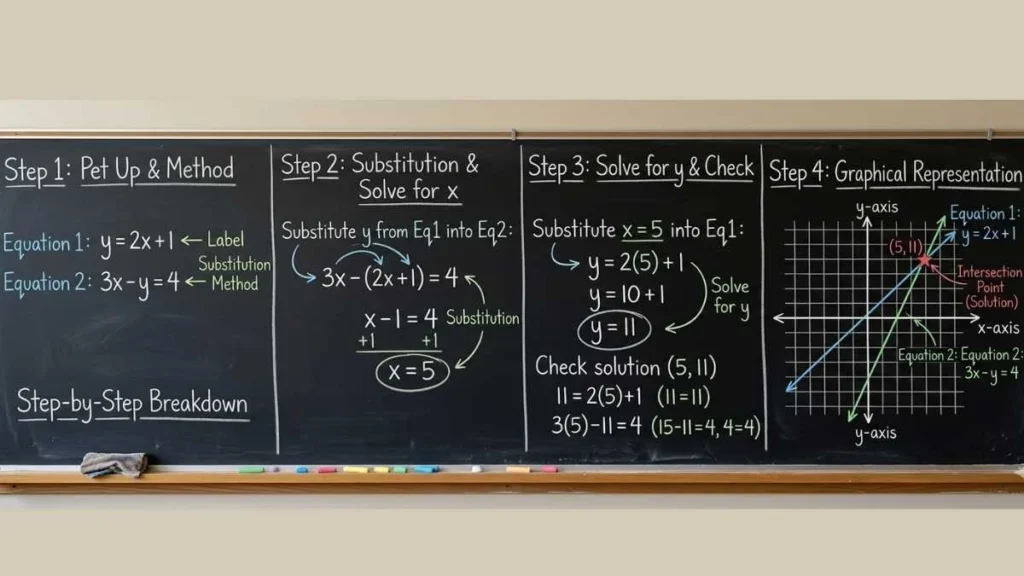 Step 1: Pet Up & Method
Equation 1: y = 2x+1 ← Label
Substitution
Equation 2: 3x - y = 4 ← Method
Step-by-Step Breakdown
Step 2: Substitution &
Solve for x
Substitute y from Eq1 into Eq2:
3x - (2x+1) = 4
x - 1 = 4 Substitution
+1 +1
x = 5
Step 3: Solve for y & Check
Substitute x = 5 into Eq1:
y = 2(5) + 1
y = 10 + 1
Solve
for y
y = 11
Check solution (5, 11)
11 = 2(5)+1 (11=11)
3(5)-11 = 4 (15-11=4, 4=4)
Step 4: Graphical Representation
y-axis
Equation 1:
y = 2x+1
(5, 11)
Intersection
Point
(Solution)
x-axis
Equation 2: Equation 2:
3x - y = 4
y-axis